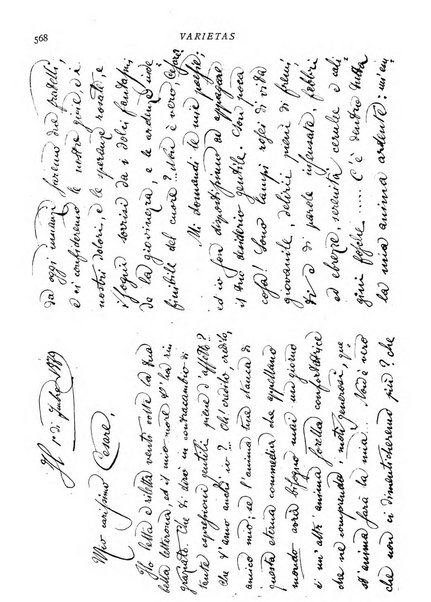 568 VARIETAS
Il 1º di 1879
Mio carissimo Cesare,
Ho letta e riletta venti volte la tua
bella letterona, ed il mio core t'ha rin
graziato. Che ti dirò in contraccambio di
tante espressioni gentili, piene d'affetto?
Che t'amo anch'io?... Oh! credi, credilo,
amico mio: se l'anima tua stanca di
questa eterna commedia che appellano
mondo avrà bisogno mai un giorno
d'un'altra anima sorella confortatrice
che ne comprenda i moti generosi, que
st'anima sarà la mia. Non è vero
che non ci dimenticheremo più? che
da oggi innanzi saremo due fratelli,
e ci confideremo le nostre gioie, e i
nostri dolori, e le speranze rosate, e
i sogni sorrisi da i dolci fantasmi
de la giovinezza, e le inde
finibile del cuore?... Non è vero, Cesare?
Mi domandi le mie poesie;
ed io son dispostissimo ad appagare
il tuo desiderio gentile. Son poca
cosa! Sono lampi rosei di vita
giovanile, delirii pieni di fremi
ti e di parole insensate, febbri
ed ebrezze, serenità cerule e ali
gini fosche..... C'è dentro tutta
la mia anima ardente: m'im